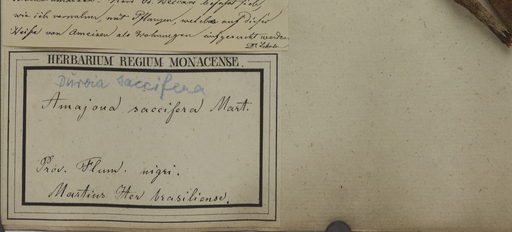 wie ich vernahm, mit Pflanzen, welche auf diese
Weise von Ameisen als Wohnungen aufgesucht werden.
HERBARIUM REGIUM MONACENSE.
Duroia saccifera
Amajoua saccifera Mart.
Prov. Flum. nigri.
Martius Iter brasiliense.